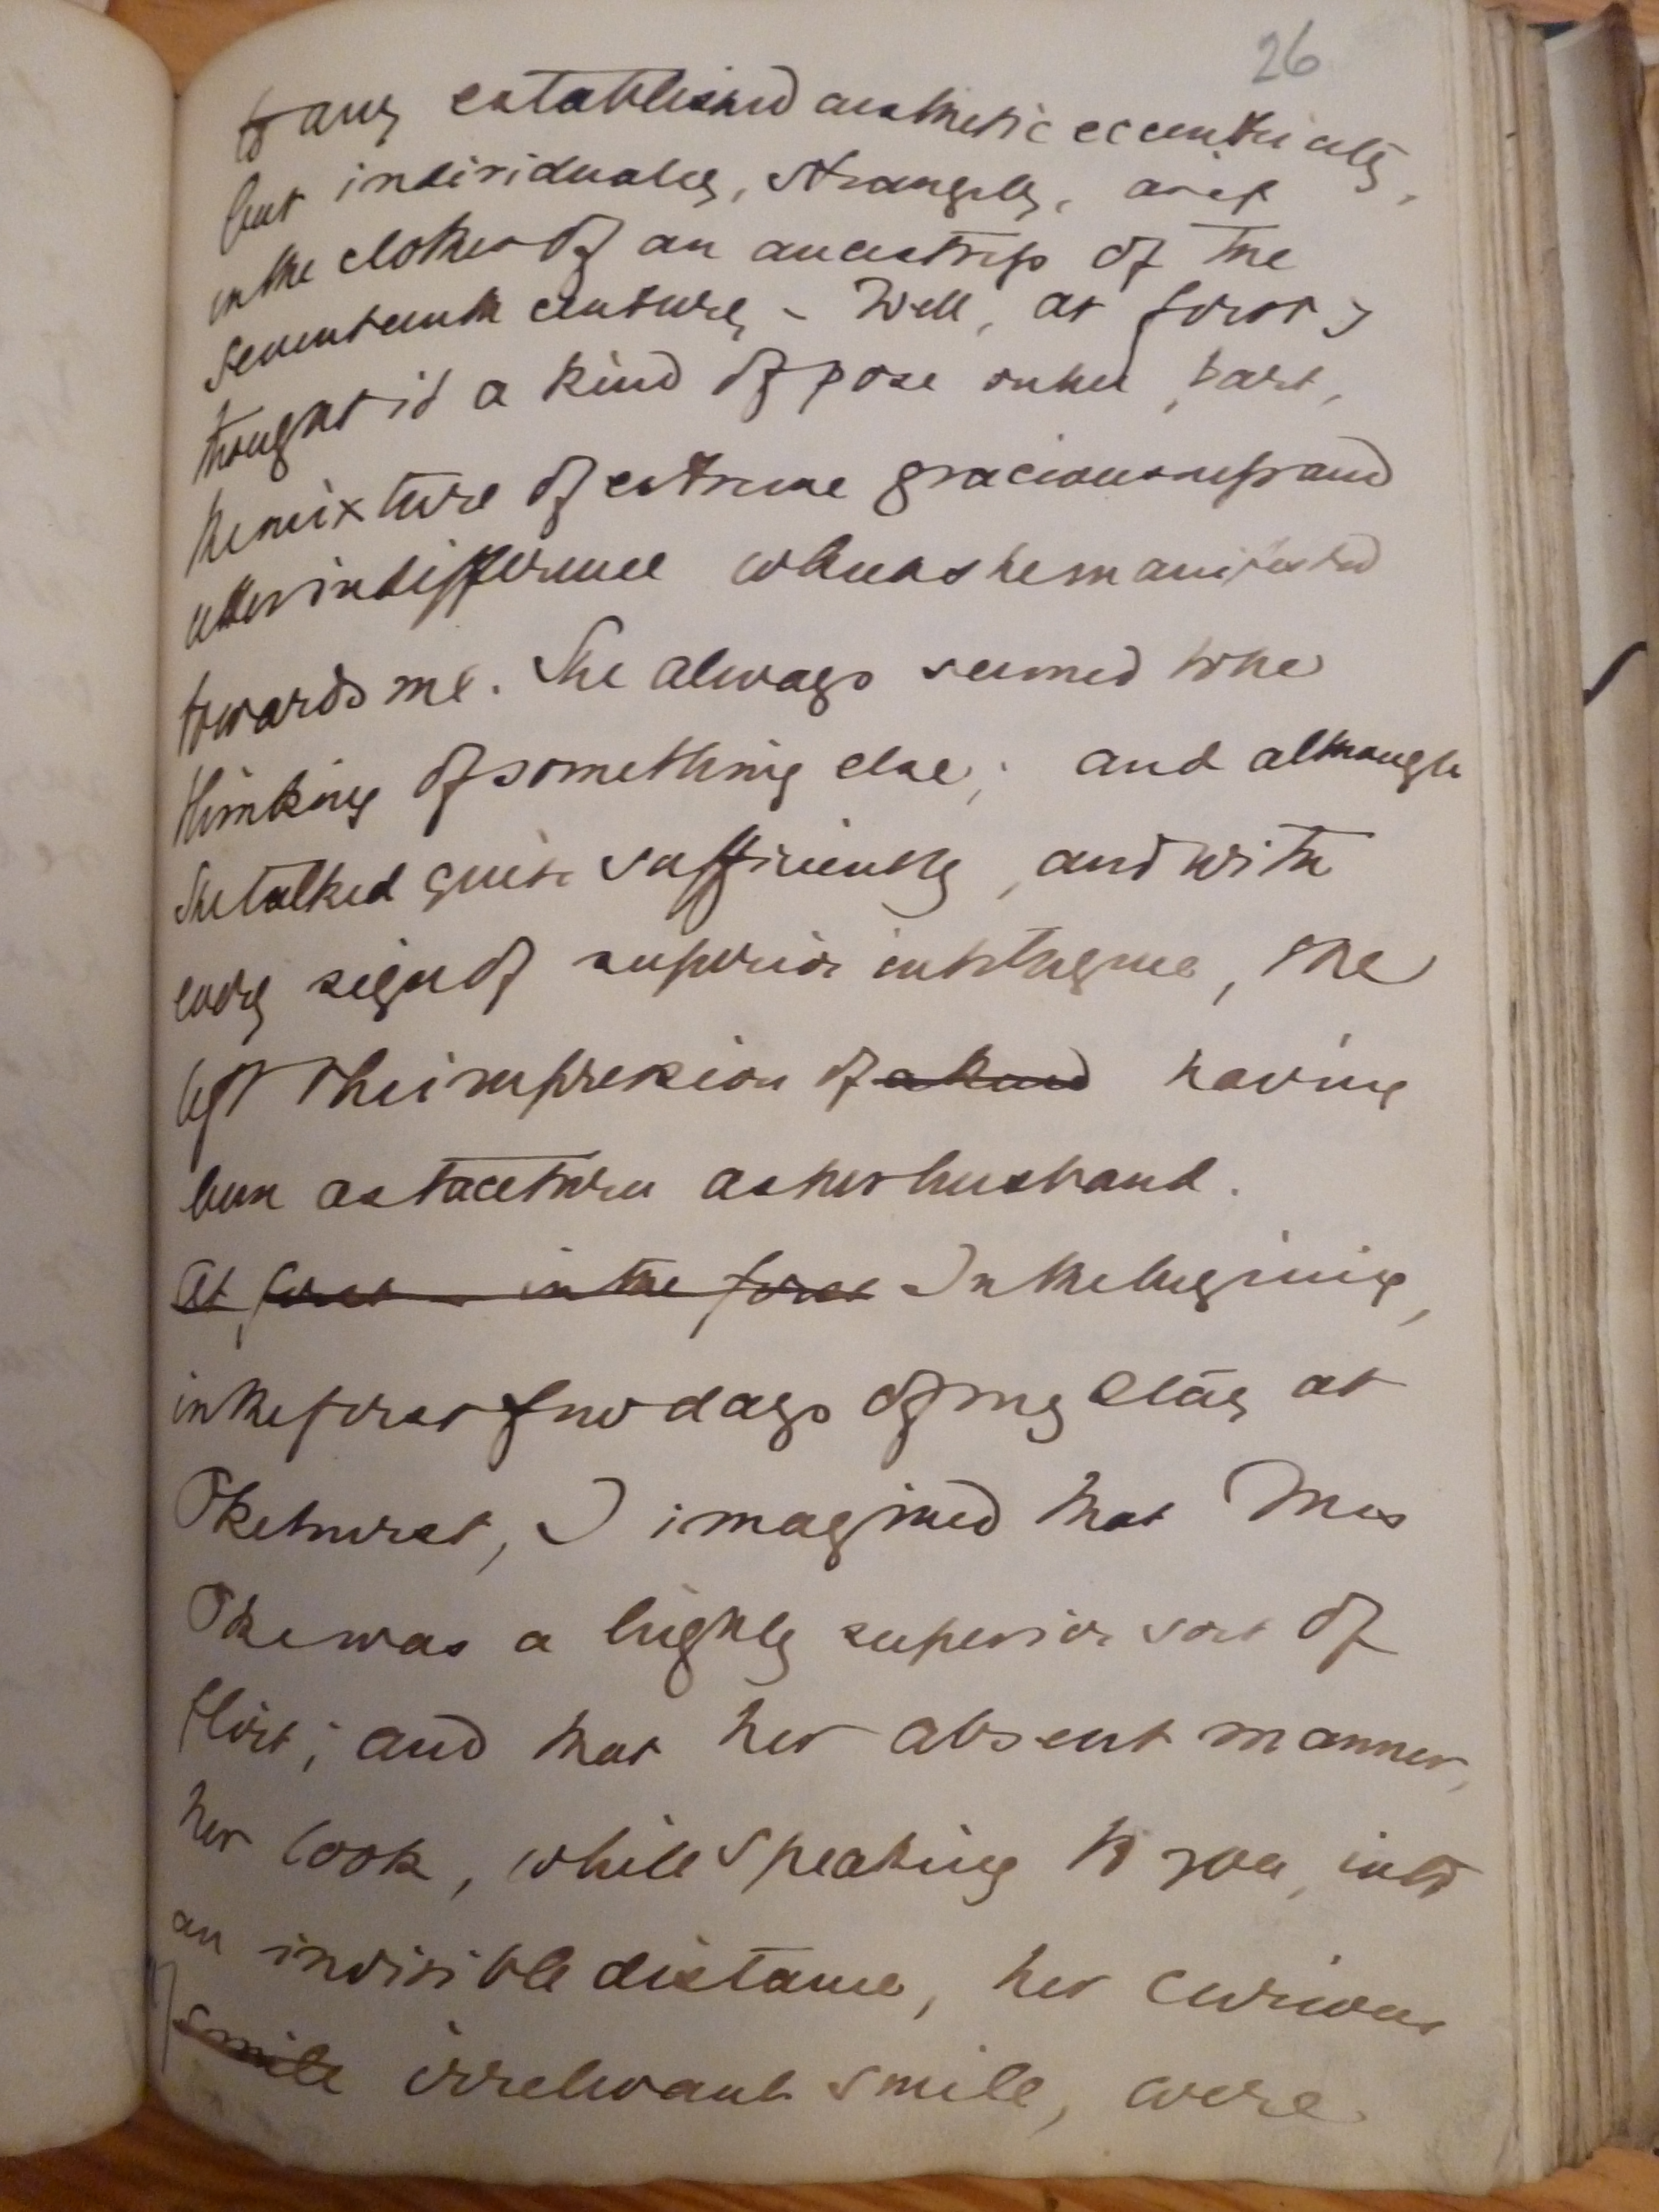 26
to any established aesthetic eccentricity,
but individually, strangely, as if
in the clothes of an ancestress of the
seventeenth century – Well, at first I
thought it a kind of pose on her part,
the mixture of extreme graciousness and
utter indifference which she manifested
towards me. She always seemed to be
thinking of something else; and although
She talked quite sufficiently, and with
every sign of superior intelligence, she
left the impression of a kind having
been as taciturn as her husband.
At first – in the first In the beginning,
in the first few days of my stay at
Okehurst, I imagined that Mrs
Oke was a highly superior sort of
flirt; and that her absent manner,
her look, while speaking to you, into
an invisible distance, her curious
smile irrelevant smile, were